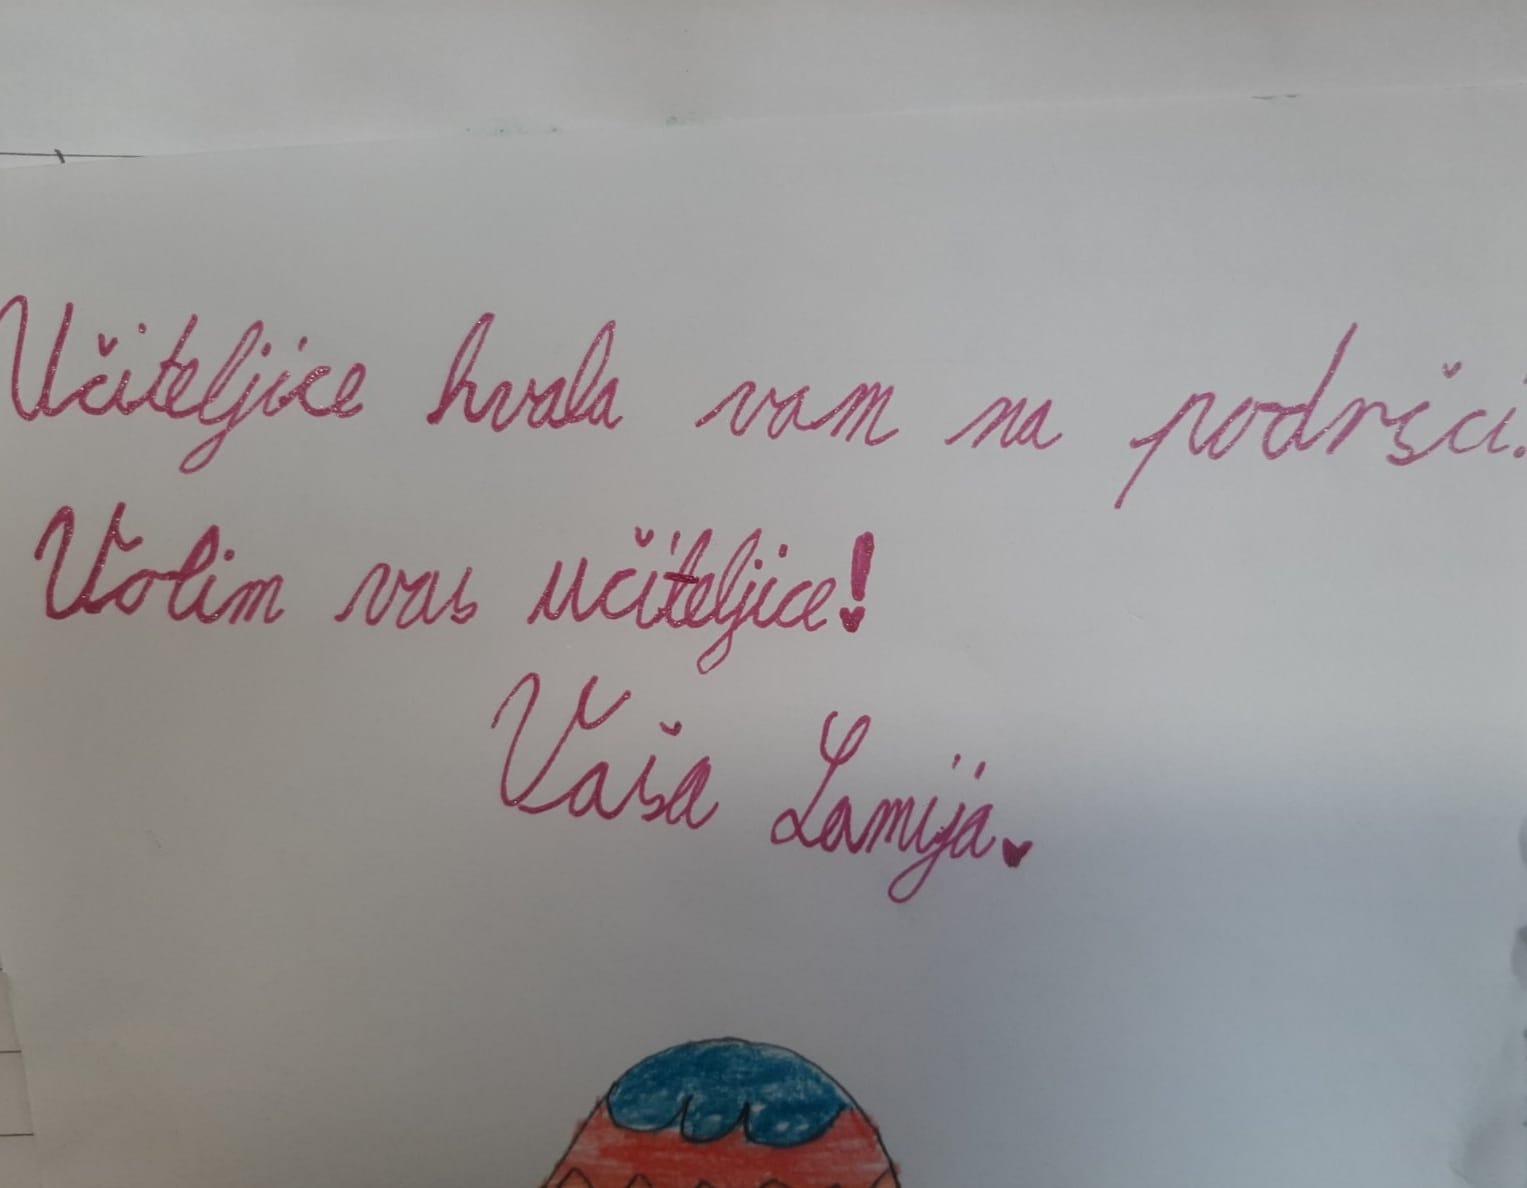 Učiteljice hvala vam na podršci!
Volim vas učiteljice!
Vaša Lamija